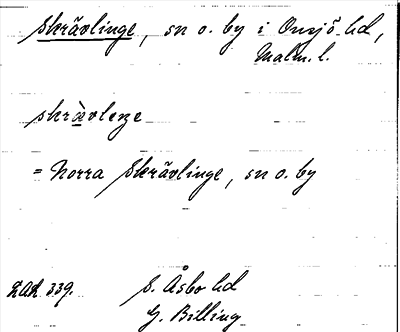 Skrävlinge, sn o. by i Onsjö hd,
Malm. l.
skrävleŋe
= Norra Skrävlinge, sn o. by
LAL 339. S. Åsbo hd
G. Billing